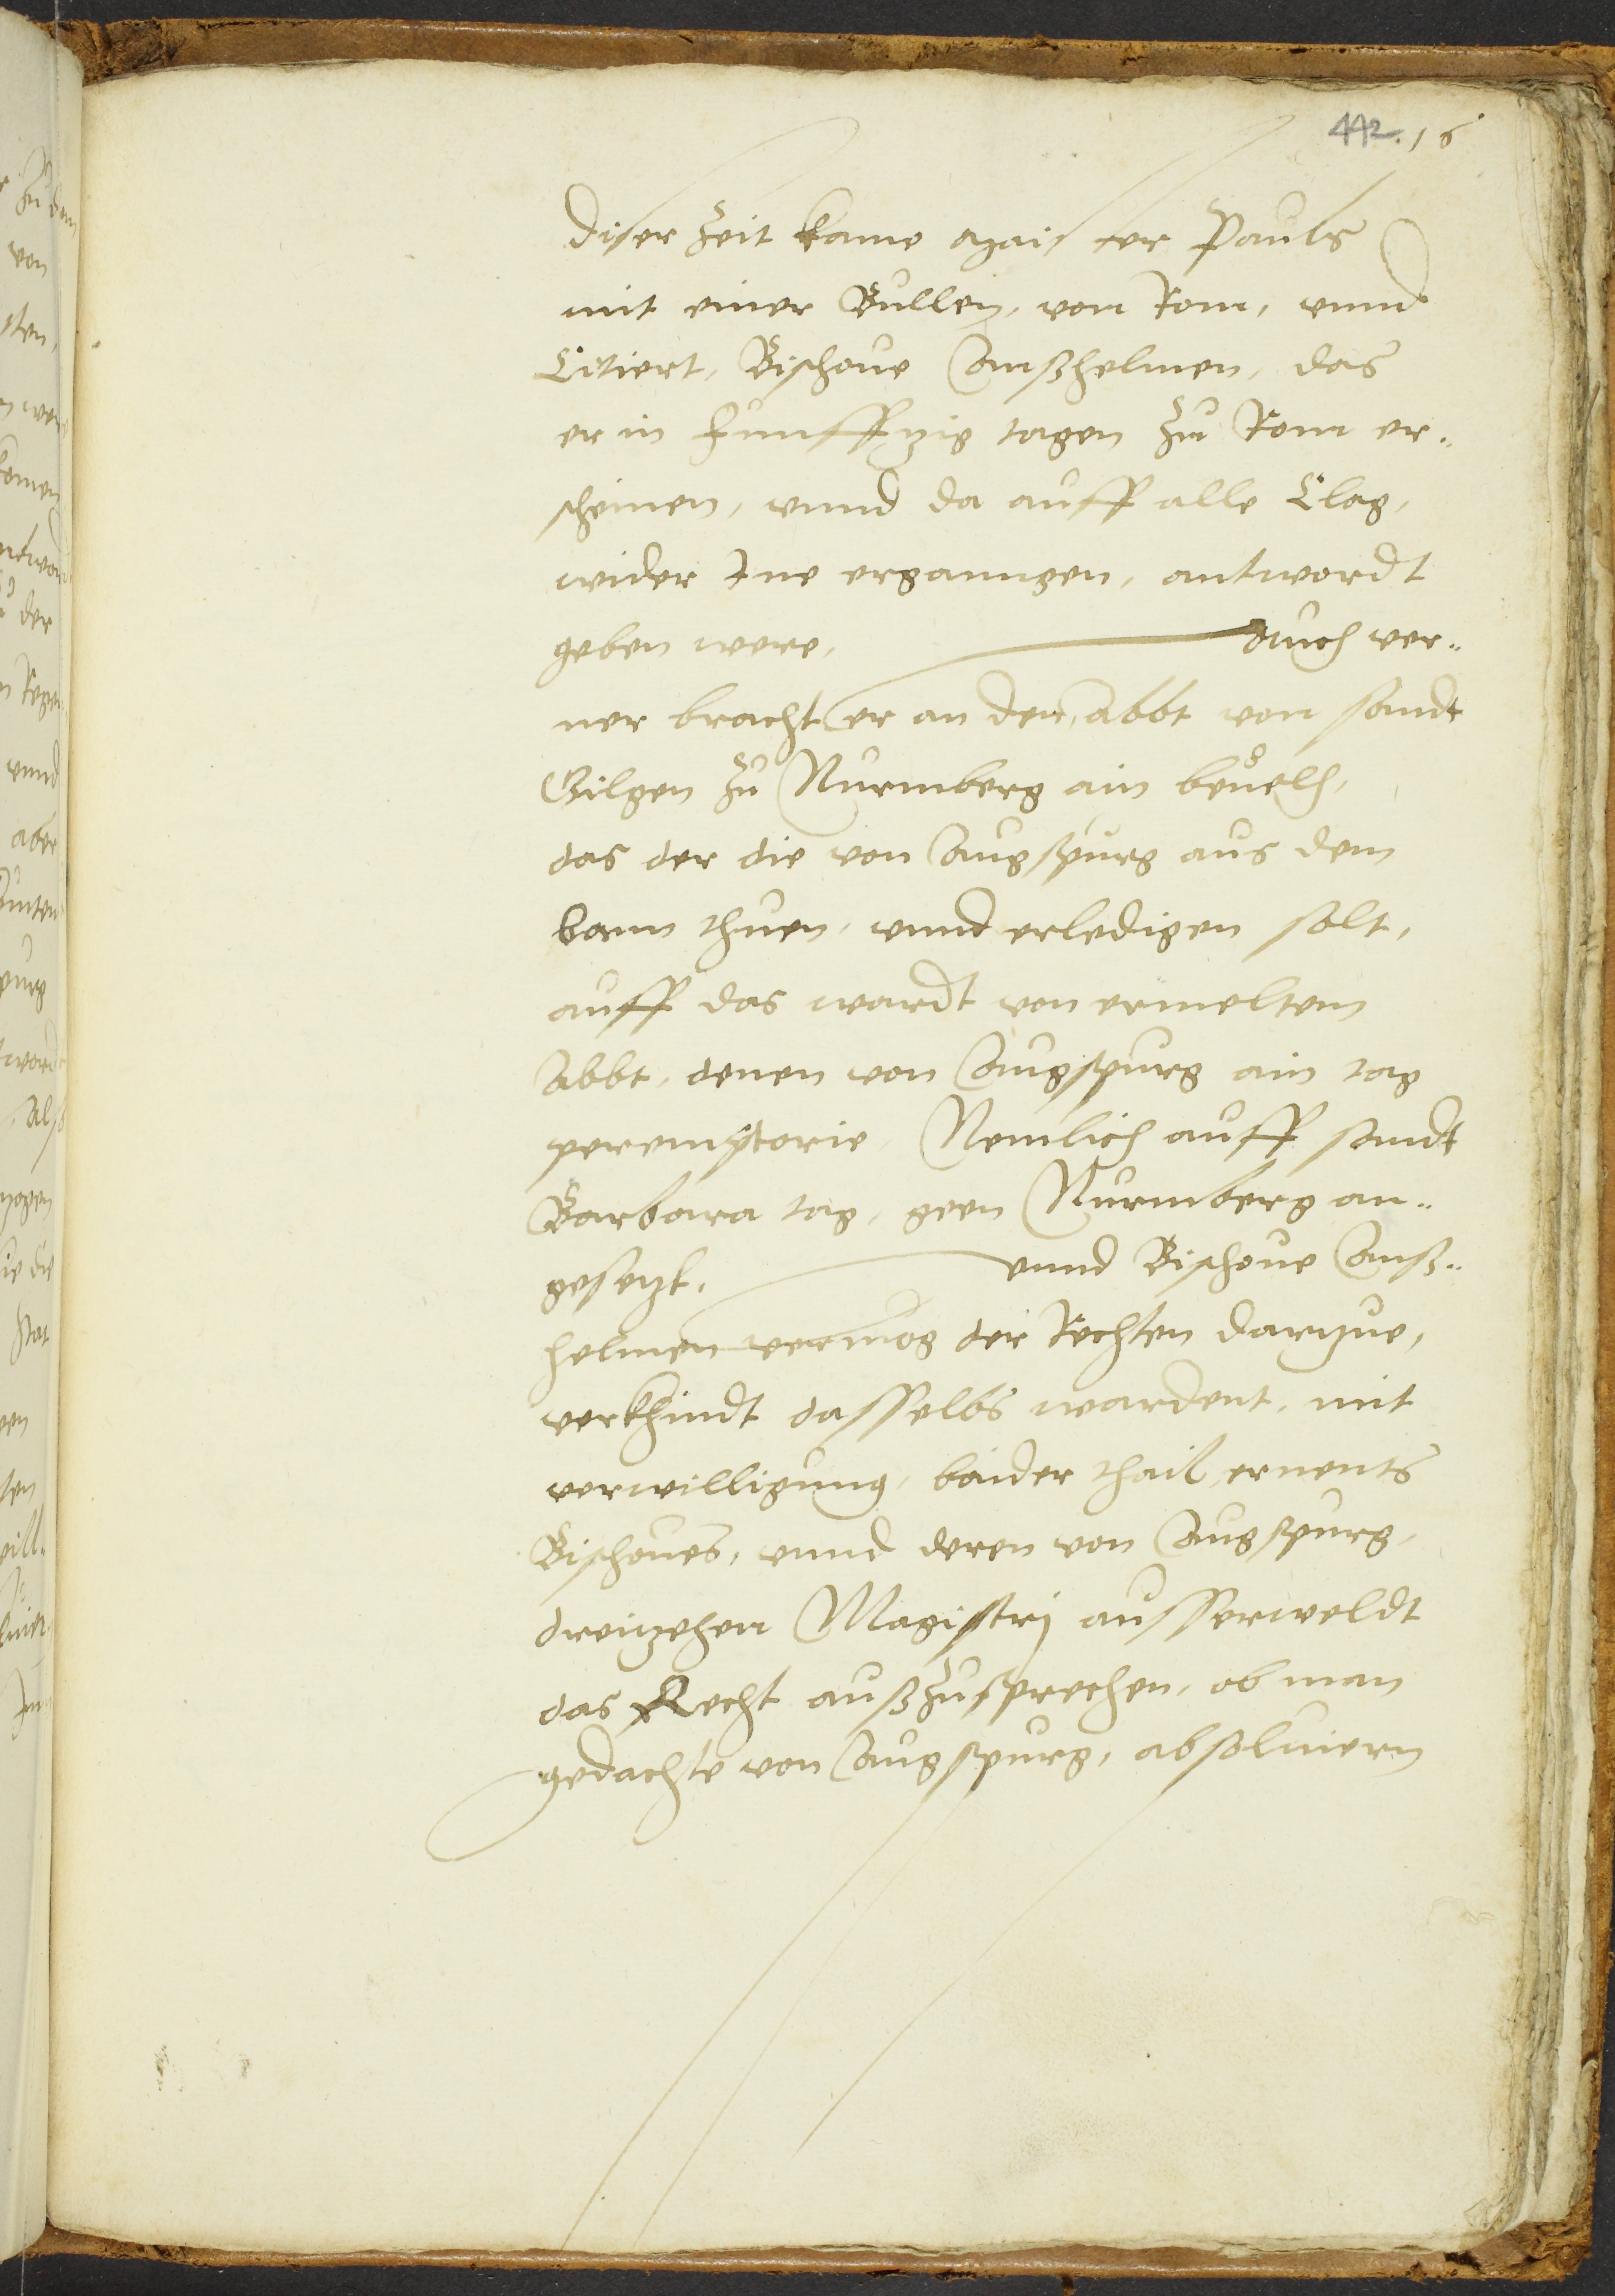 442. 16
diser Zeit kame maister Pauls
mit einer Bullen, von Rom, vnnd
Citiert, Bischoue Annßhelmen, das
er in Funffzig tagen zu Rom er¬
scheinen, vnnd da auff alle Clag,
wider Ine erganngen, antwordt
geben were, Auch ver¬
ner bracht er an den Abbt von sandt
Gilgen zu Nurmberg ain beuelh,
das der die von Augspurg aus dem
bann thuen, vnnd erledigen solt,
auff das wardt von ermeltem
Abbt, denen von Augspurg ain tag
peremptorie, Nemlich auff sandt
Barbara tag, geen Nurmberg an¬
gesezt, vnnd Bischoue Annß¬
helmen vermög der Rechten darzue,
verkhindt dasselbs wardent, mit
verwilligung, baider thail, ernents
Bischoues, vnnd deren von Augspurg,
dreizehen Magistrj ausserweldt
das Recht außzusprechen, ob man
gedachte von Augspurg, absoluiern